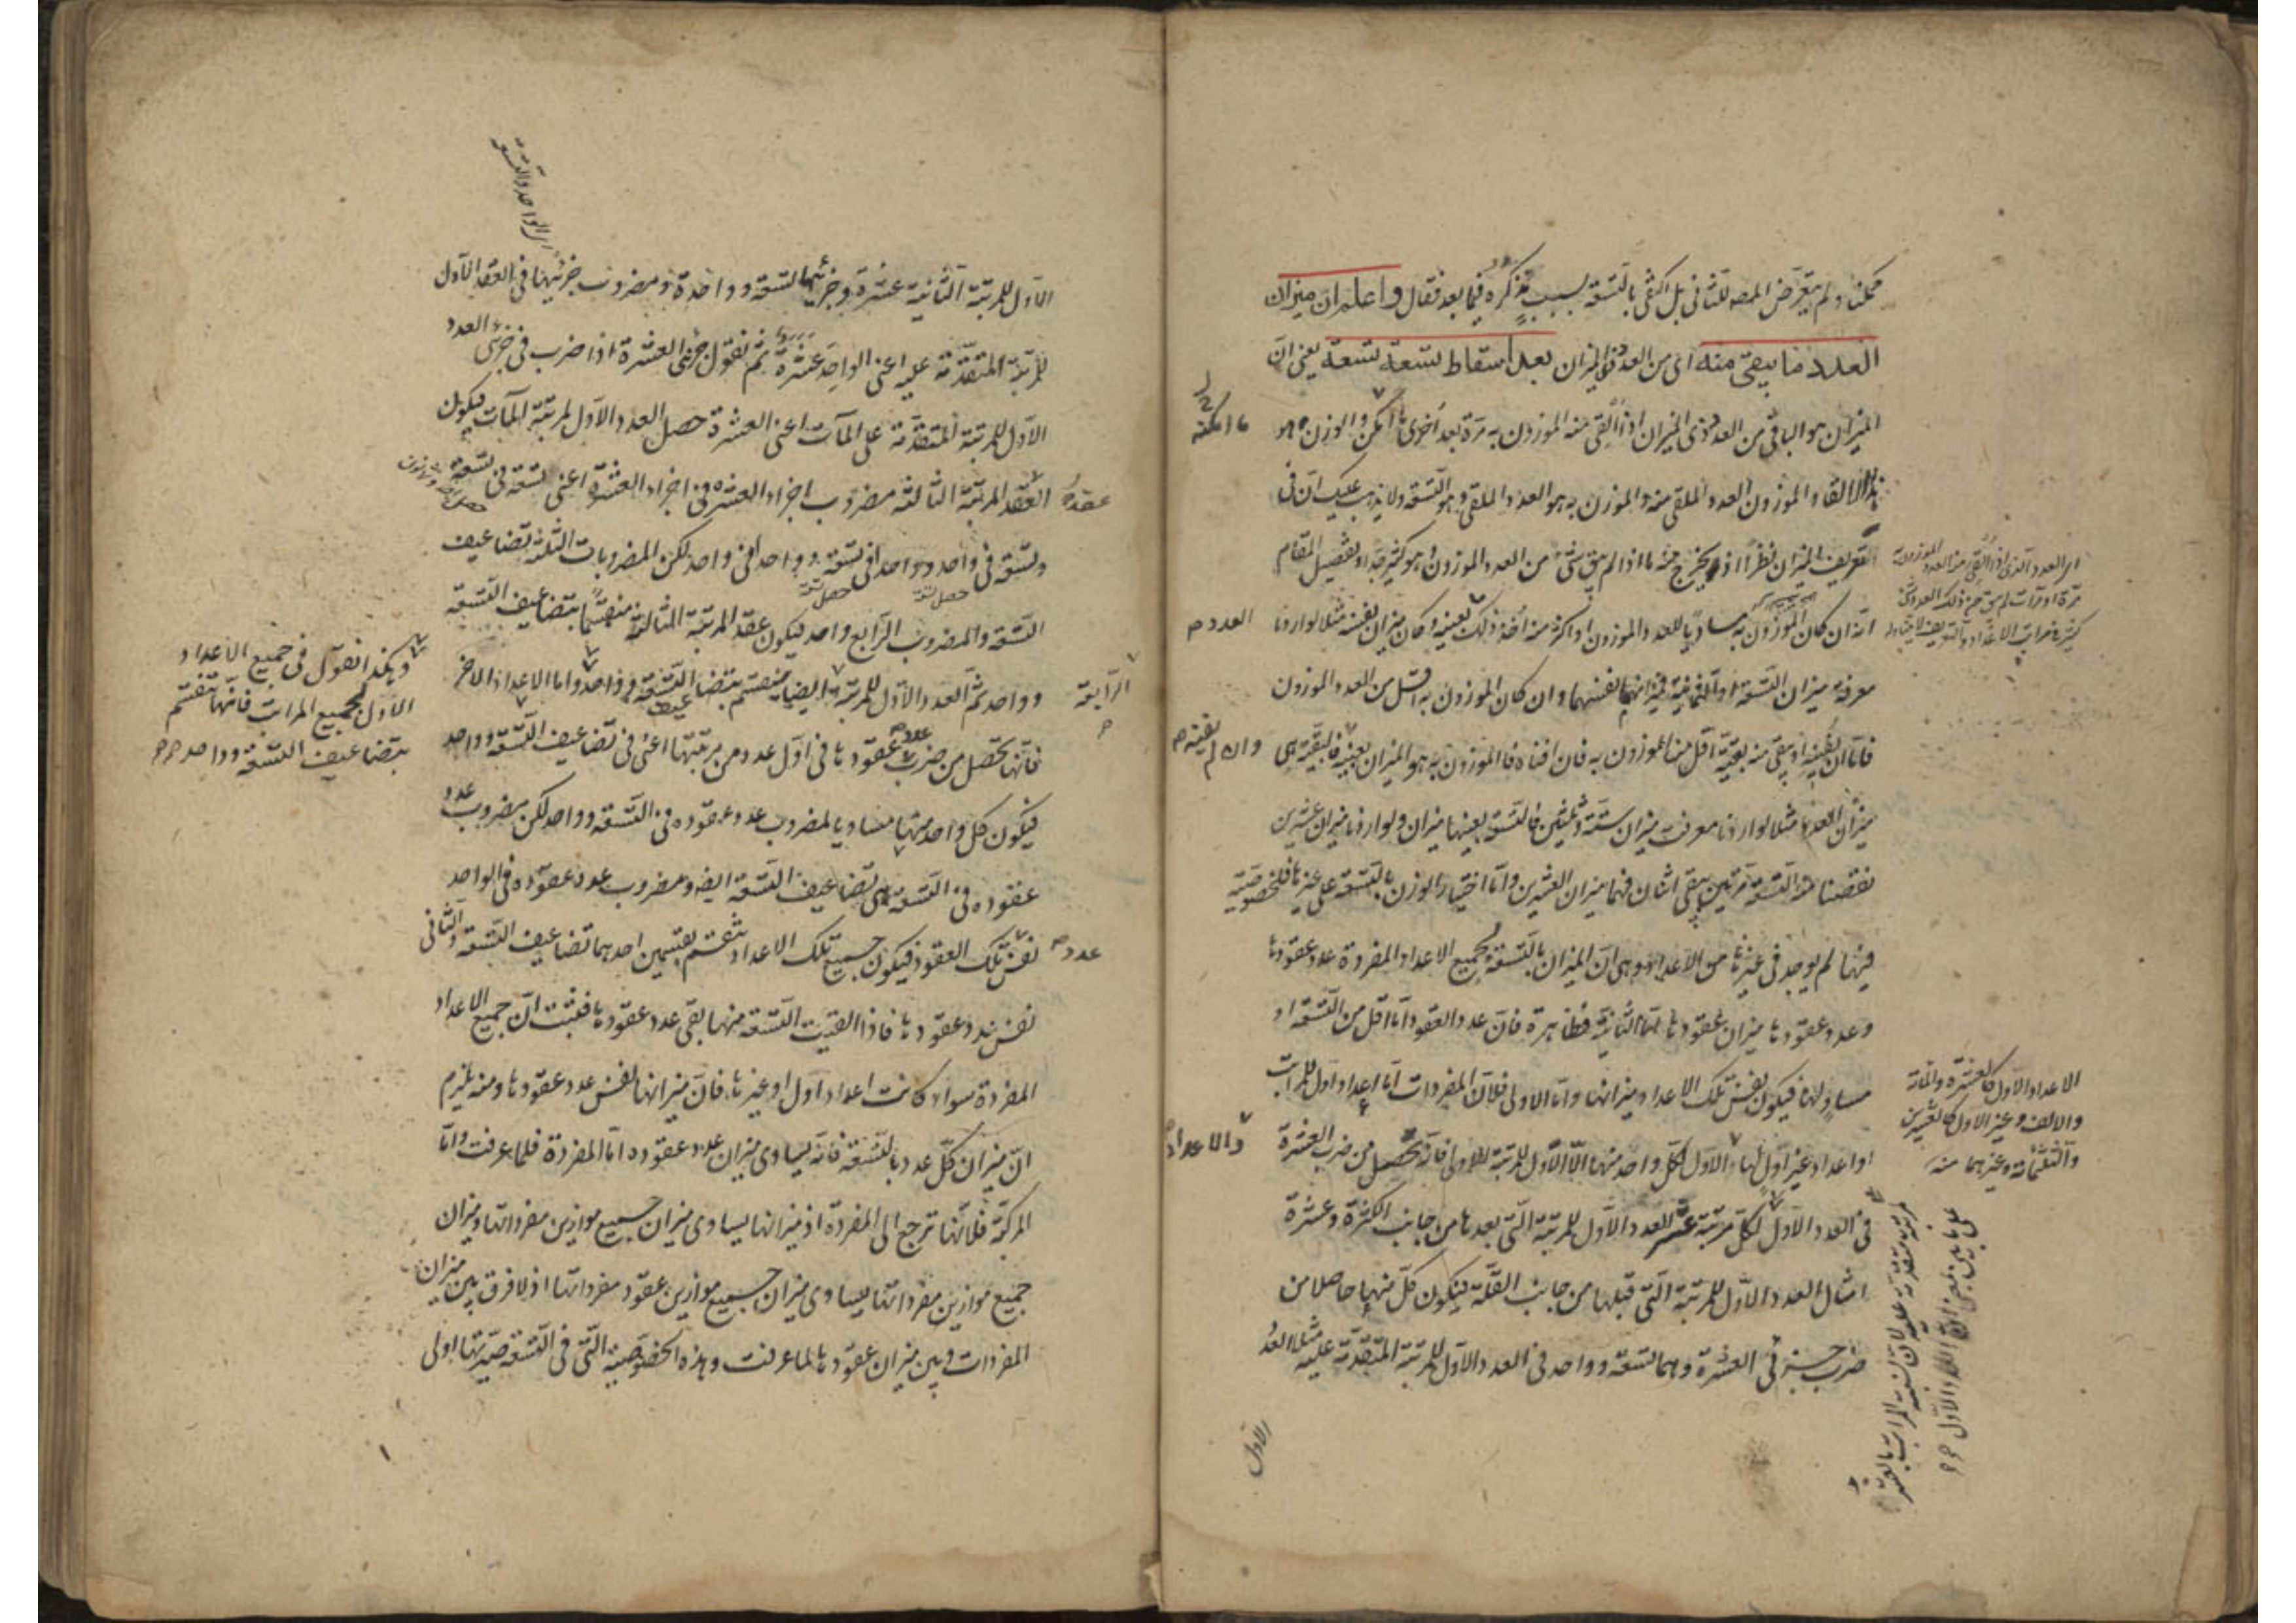 ممكنا ولم يتعرض المصه للثانى بل اكتفى بالتسعة لسبب نذكره فيما بعد فقال واعلم ان ميزان
العدد ما يبقى منه اى من العدد ذى الميزان بعد اسقاط تسعة تسعة يعنى ان
الميزان هو الباقى من العدد ذى الميزان اذا القى منه الموزون به مرة بعد اخرى ما امكن والوزن هو
ما امكنه
هذا الالقاء والموزون العدد الملقى منه والموزون به هو العدد الملقى وهو التسعة ولا يذهب عليك ان فى
التعريف الميزان نظرا اذ يخرج منه ما اذا لم يبق شئ من العدد الموزون وهو كثير جدا وتفصيل المقام
انه ان كان الموزون به مساويا للعدد الموزون او اكثر منه اخذ ذلك بعينه وكان ميزان نفسه مثلا لو اردنا
العدد
معرفة ميزان التسعة او الثمانية فميزانهما نفسهما وان كان الموزون به اقل من العدد الموزون
فاما ان يفنيه او يبقى منه بقية اقل من الموزون به فان افناه فالموزون به هو الميزان بعينه فالبقية هى
وان لم يفنه
ميزان العدد مثلا لو اردنا معرفت ميزان ستة وثلثين فالتسعة بعينها ميزان ولو اردنا ميزان عشرين
نقصنا منه التسعة مرتين يبقى اثنان فهما ميزان العشرين وانما اختيار الوزن بالتسعة على غيرها فلخصوصية
فيها لم يوجد فى غيرها من الاعداد وهى ان الميزان بالتسعة لجميع الاعداد المفردة عدد عقودها
وعدد عقودها ميزان عقودها اما الثانية فظاهرة فان عدد العقود اما اقل من التسعة او
مساو لها فيكون نفس تلك الاعداد ميزانها واما الاولى فلان المفردات اما اعداد اول للمراتب
او اعداد غير اول لها والاول لكل واحد منها الا الاول للمرتبة الاولى فانه يحصل من ضرب العشرة
والاعداد
فى العدد الاول لكل مرتبة العدد الاول للمرتبة التى بعدها من جانب الكثرة وعشرة
امثال العدد الاول للمرتبة التى قبلها من جانب القلة فيكون كل منها حاصلا من
ضرب جزئى العشرة وهما تسعة وواحد فى العدد الاول للمرتبة المتقدمة عليه مثلا العدد
الاول
الاعداد الاول كالعشرة والمائة
والالف وغير الاول كالعشرين
والثلثمائة وغيرهما منه
الاول للمرتبة الثانية عشرة وجزئيها تسعة وواحدة ومضروب جزئيها فى العقد الاول
للمرتبة المتقدمة عليه اعنى الواحد عشرة ثم نقول جزئى العشرة اذا ضرب فى جزئى العدد
الاول للمرتبة المتقدمة على المآت اعنى العشرة حصل العدد الاول لمرتبة المآت فيكون
عقد
العقد المرتبة الثالثة مضروب اجزاء العشرة فى اجزاء العشرة اعنى تسعة فى تسعة
وتسعة فى واحد وواحد فى تسعة وواحد فى واحد لكن المضروبات الثلثة تضاعيف
التسعة والمضروب الرابع واحد فيكون عقد المرتبة الثالثة منقسما بتضاعيف التسعة
وواحد ثم العدد الاول للمرتبة ايضا منقسم بتضاعيف التسعة وواحد واما الاعداد الاخر
الرابعة
فانها تحصل من ضرب عدد عقودها فى اول عدد من مرتبتها اعنى فى تضاعيف التسعة وواحد
فيكون كل واحد منها مساويا لمضروب عدد عقوده فى التسعة وواحد لكن مضروب عدد
عقوده فى التسعة هى تضاعيف التسعة ايضا ومضروب عدد عقوده فى الواحد
نفس تلك العقود فيكون جميع تلك الاعداد تنقسم بقسمين احدهما تضاعيف التسعة والثانى
عدد
نفس عدد عقودها فاذا القيت التسعة منها بقى عدد عقودها فثبت ان جميع الاعداد
المفردة سواء كانت اعداد اول او غيرها فان ميزانها نفس عدد عقودها ومنه يلزم
ان ميزان كل عدد بالتسعة فانه يساوى ميزان عدد عقوده اما المفردة فلما عرفت واما
المركبة فلانها ترجع الى المفردة اذ ميزانها يساوى ميزان جميع موازين مفرداتها وميزان
جميع موازين مفرداتها يساوى ميزان جميع موازين عقود مفرداتها اذ لا فرق بين ميزان
المفردات وبين ميزان عقودها لما عرفت وهذه الخصوصية التى فى التسعة صيرتها اولى
وهكذا نقول فى جميع الاعداد
الاول لجميع المراتب فانها تنقسم
بتضاعيف التسعة وواحد